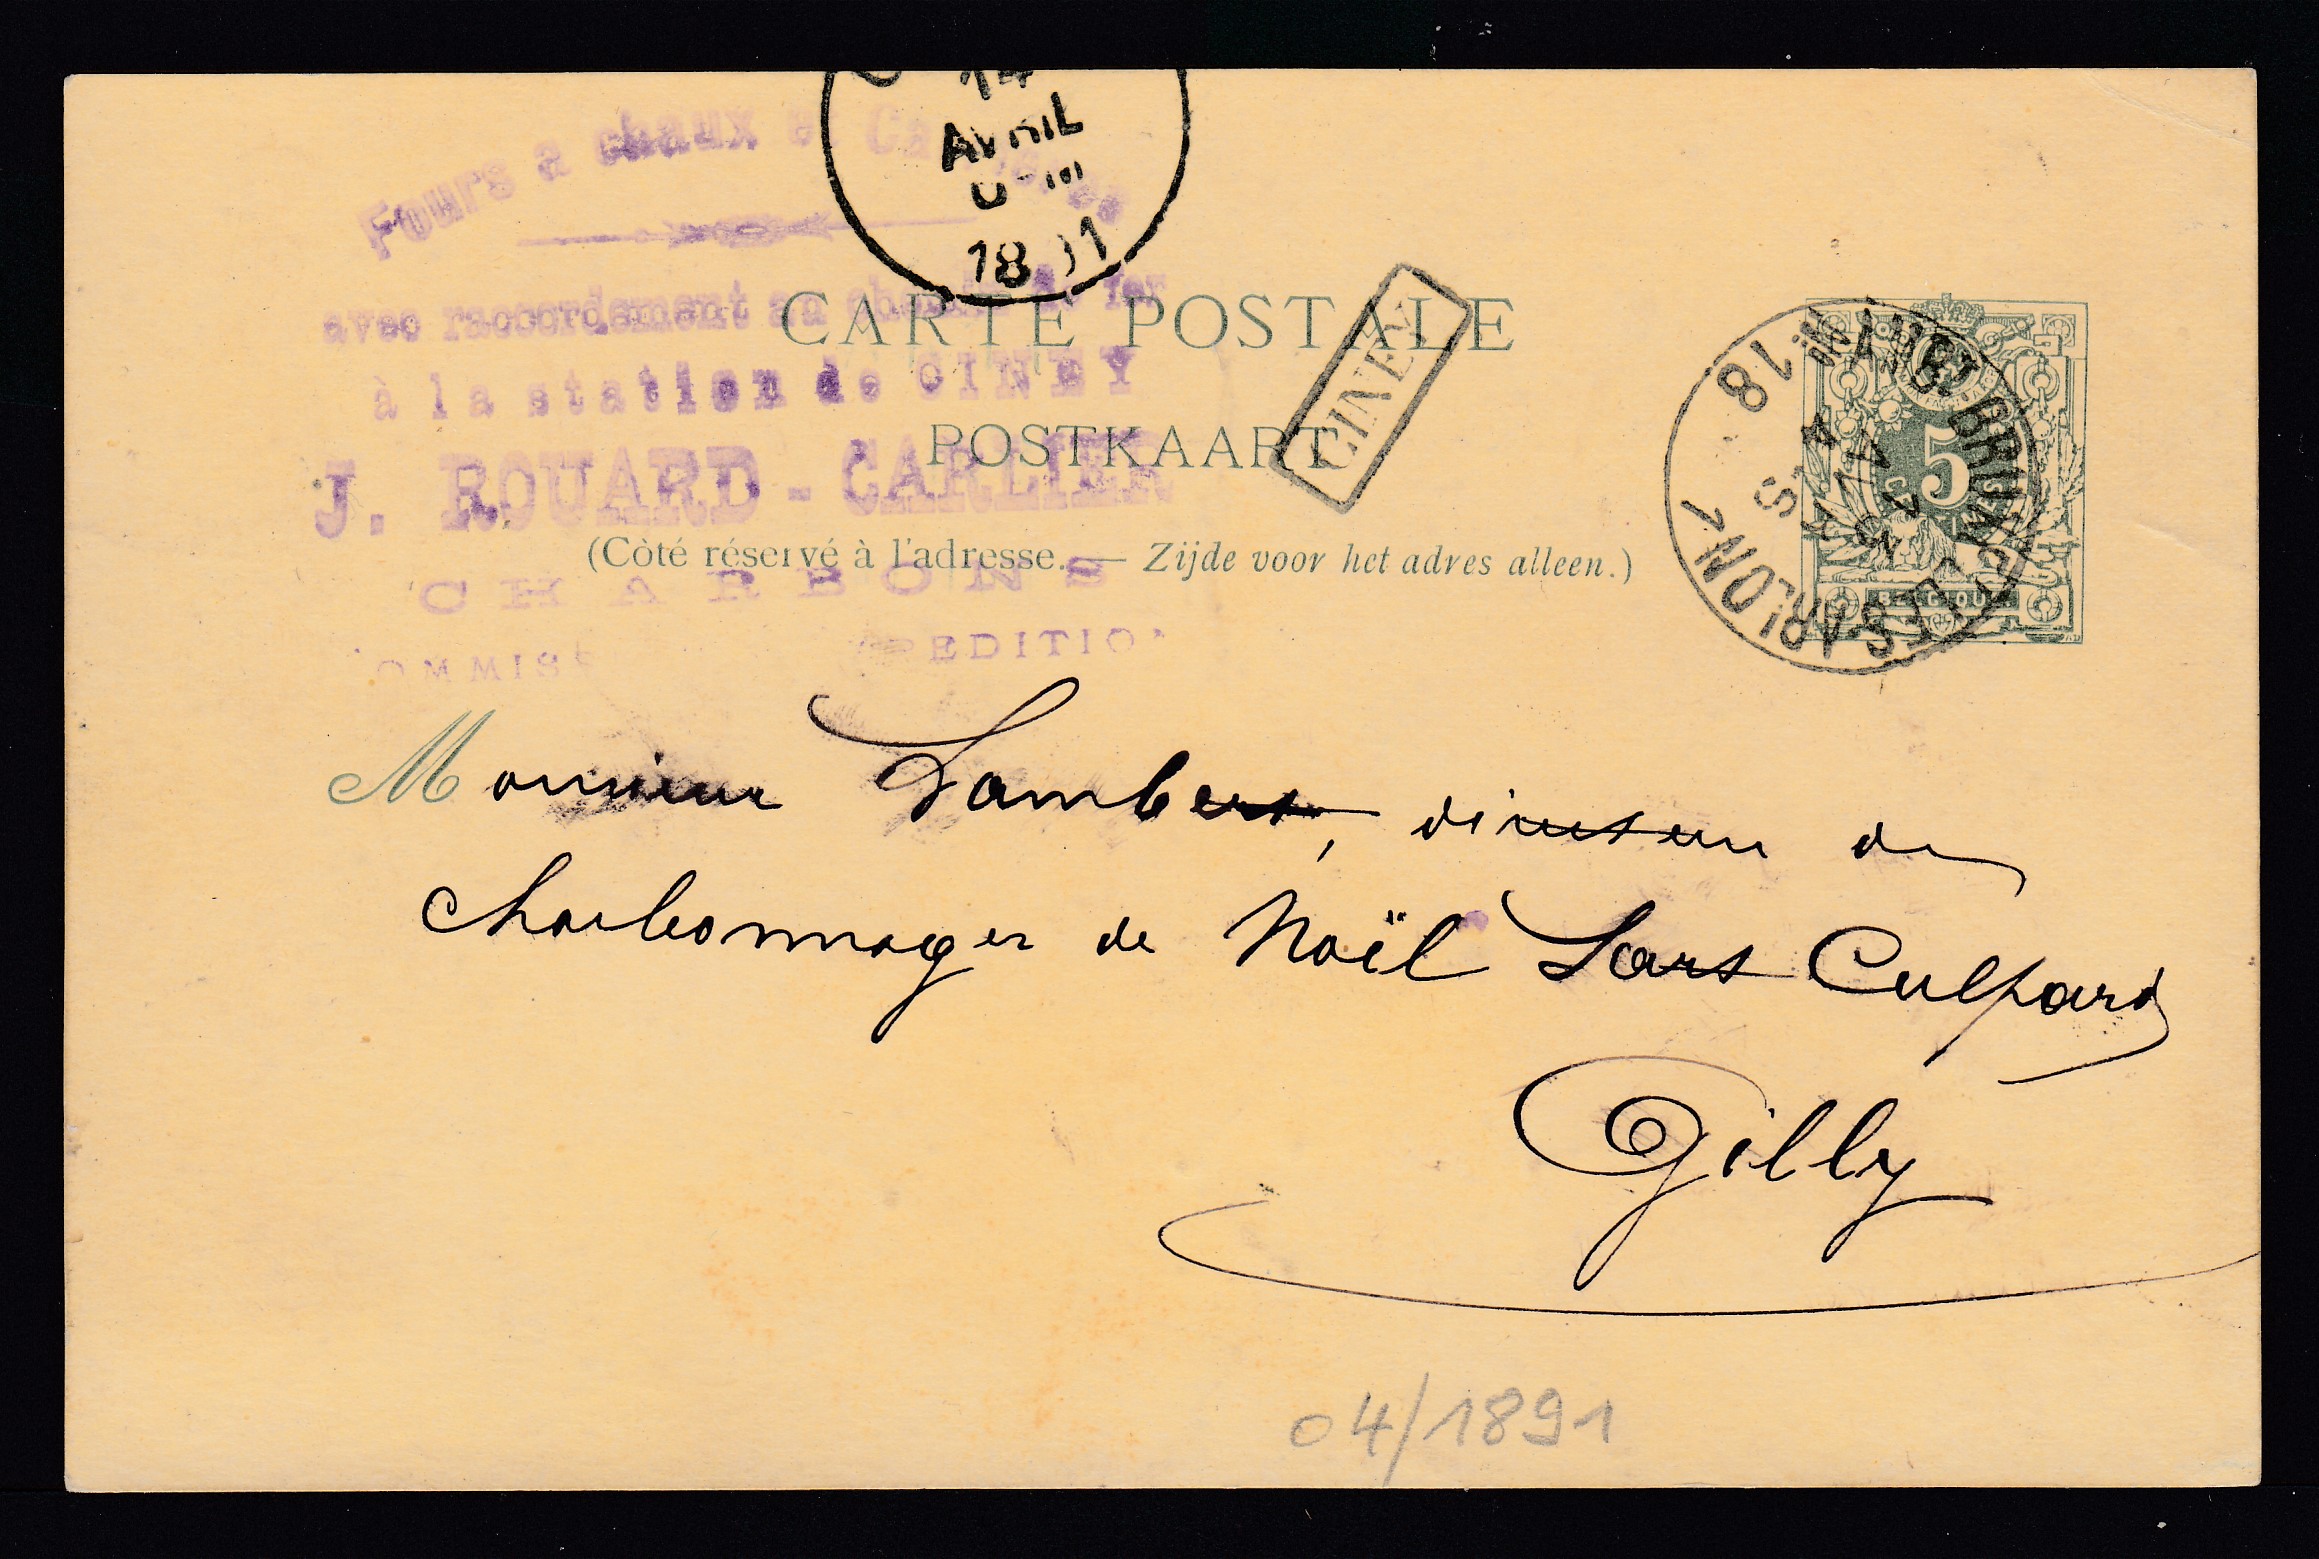 Fours a chaux
14
AVRIL
18 1
avec raccordement au chemin de fer
à la station de CINEY
J. ROUARD - CARLIER
CHARBONS
CARTE POSTALE
POSTKAART
(Côté réservé à l'adresse. — Zijde voor het adres alleen.)
CINEY
5
BELGIQUE
BRUXELLES-ARLON 1
Monsieur Lambert, directeur des
charbonnages de Noël Sart Culpart
Gilly
04/1891